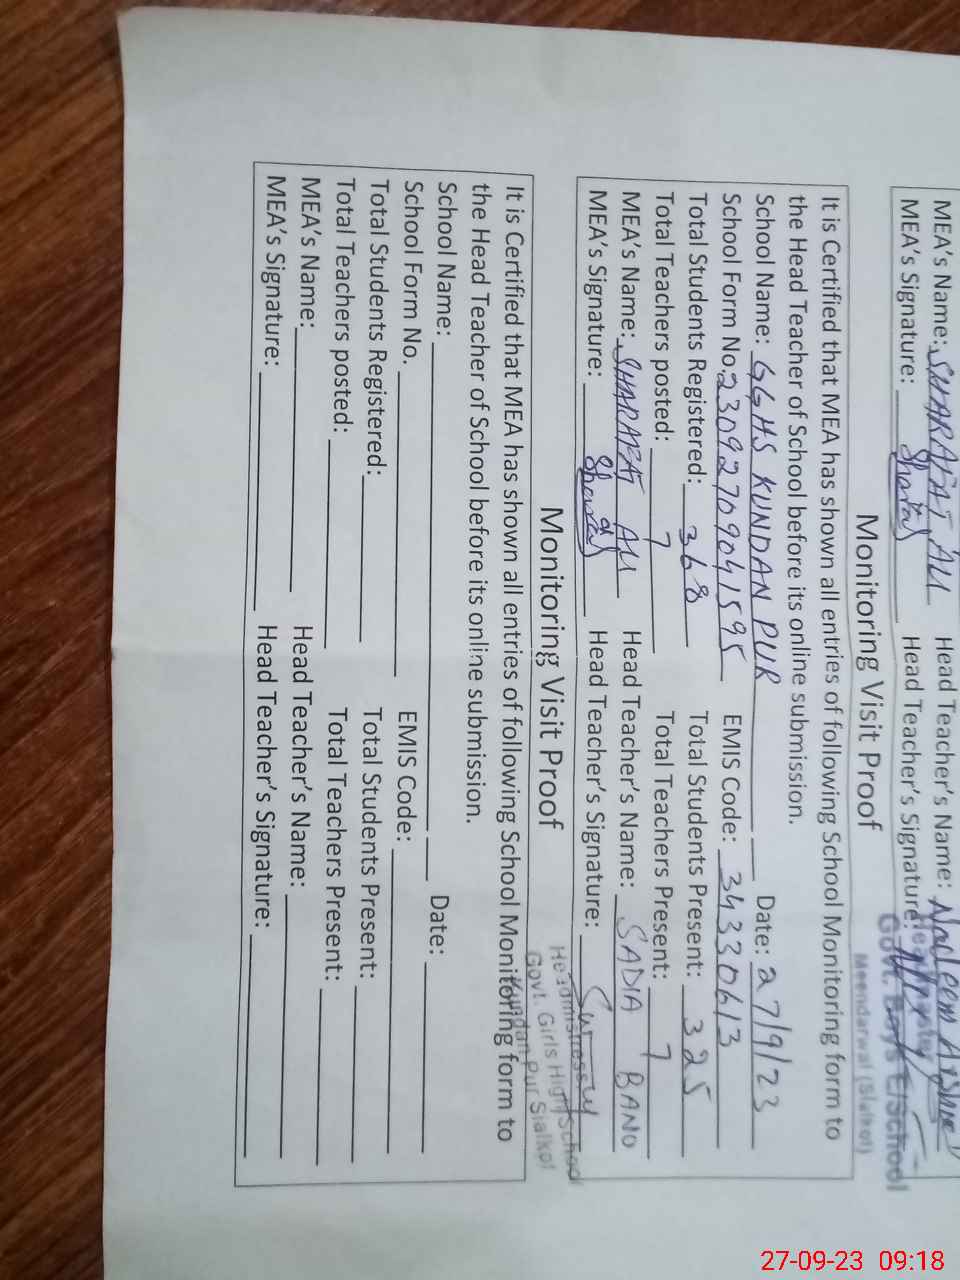 MEA's Name: SHARAFAT ALI Head Teacher's Name: Nadeem
MEA's Signature: Head Teacher's Signature:
Headmaster
Govt. Boys E/School
Meendarwal (Sialkot)
Monitoring Visit Proof
It is Certified that MEA has shown all entries of following School Monitoring form to
the Head Teacher of School before its online submission.
School Name: GGHS KUNDAN PUR Date: 27/9/23
School Form No. 23092709041595 EMIS Code: 34330613
Total Students Registered: 368 Total Students Present: 325
Total Teachers posted: 7 Total Teachers Present: 7
MEA's Name: SHARAFAT ALI Head Teacher's Name: SADIA BANO
MEA's Signature: Head Teacher's Signature:
Headmistress
Govt. Girls High School
Kundan Pur Sialkot
Monitoring Visit Proof
It is Certified that MEA has shown all entries of following School Monitoring form to
the Head Teacher of School before its online submission.
School Name: Date:
School Form No. EMIS Code:
Total Students Registered: Total Students Present:
Total Teachers posted: Total Teachers Present:
MEA's Name: Head Teacher's Name:
MEA's Signature: Head Teacher's Signature:
27-09-23 09:18